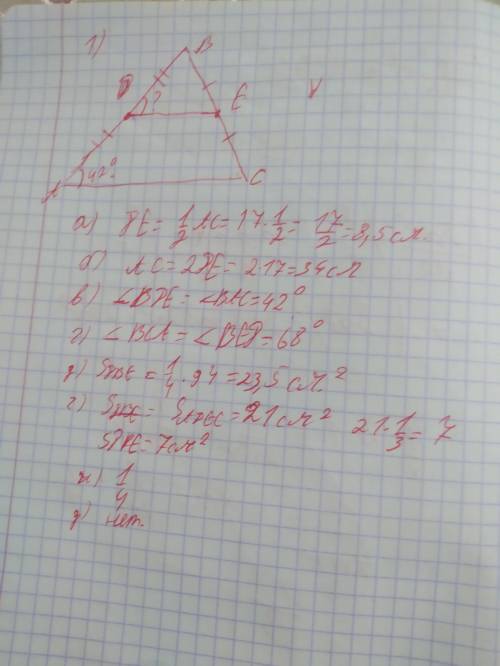 1)
B
D
?
E
A
42°
C
а) DE = 1/2 AC = 17 · 1/2 = 17/2 = 8,5 см.
б) AC = 2DE = 2·17 = 34 см
в) ∠BDE = ∠BAC = 42°
г) ∠BCA = ∠BED = 68°
д) = 1/4 · 94 = 23,5 см²
= 21 см² 21 · 1/3 = 7
= 7 см²
ж) 1/4
нет.